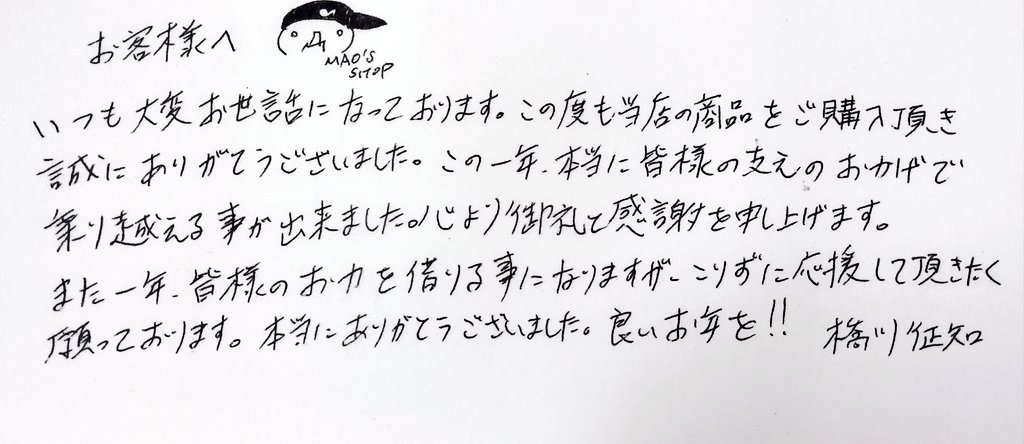 お客様へ
MAO'S
SHOP
いつも大変お世話になっております。この度も当店の商品をご購入頂き
誠にありがとうございました。この一年、本当に皆様の支えのおかげで
乗り越える事が出来ました。心より御礼と感謝を申し上げます。
また一年、皆様のお力を借りる事になりますが、こりずに応援して頂きたく
願っております。本当にありがとうございました。良いお年を!! 橋川 征知